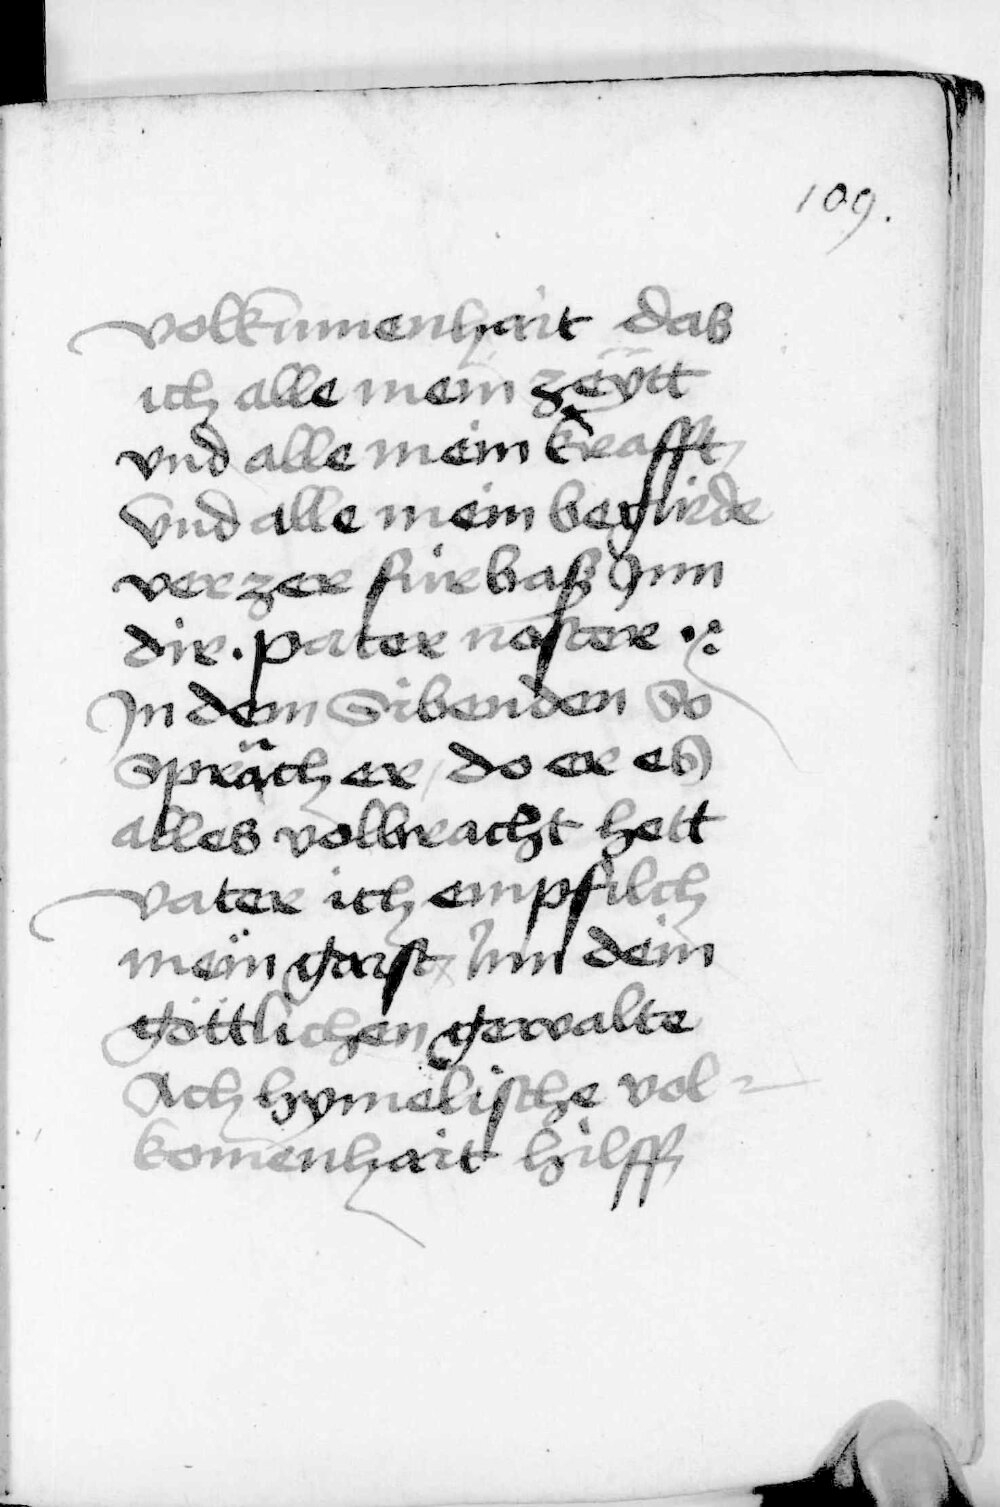 109.
volkumenhait das
ich alle mein zeÿtt
vnd alle mein krafft
vnd alle mein begirde
verzer fúrbaß Jnn
dir. pater noster
Jn dem Sibenden So
Spräch er do er es
alles volbracht hett
vater ich empfilch
mein gaist Jnn dein
göttlichen gewalte
Ach hymelische vol=
komenhait hilff